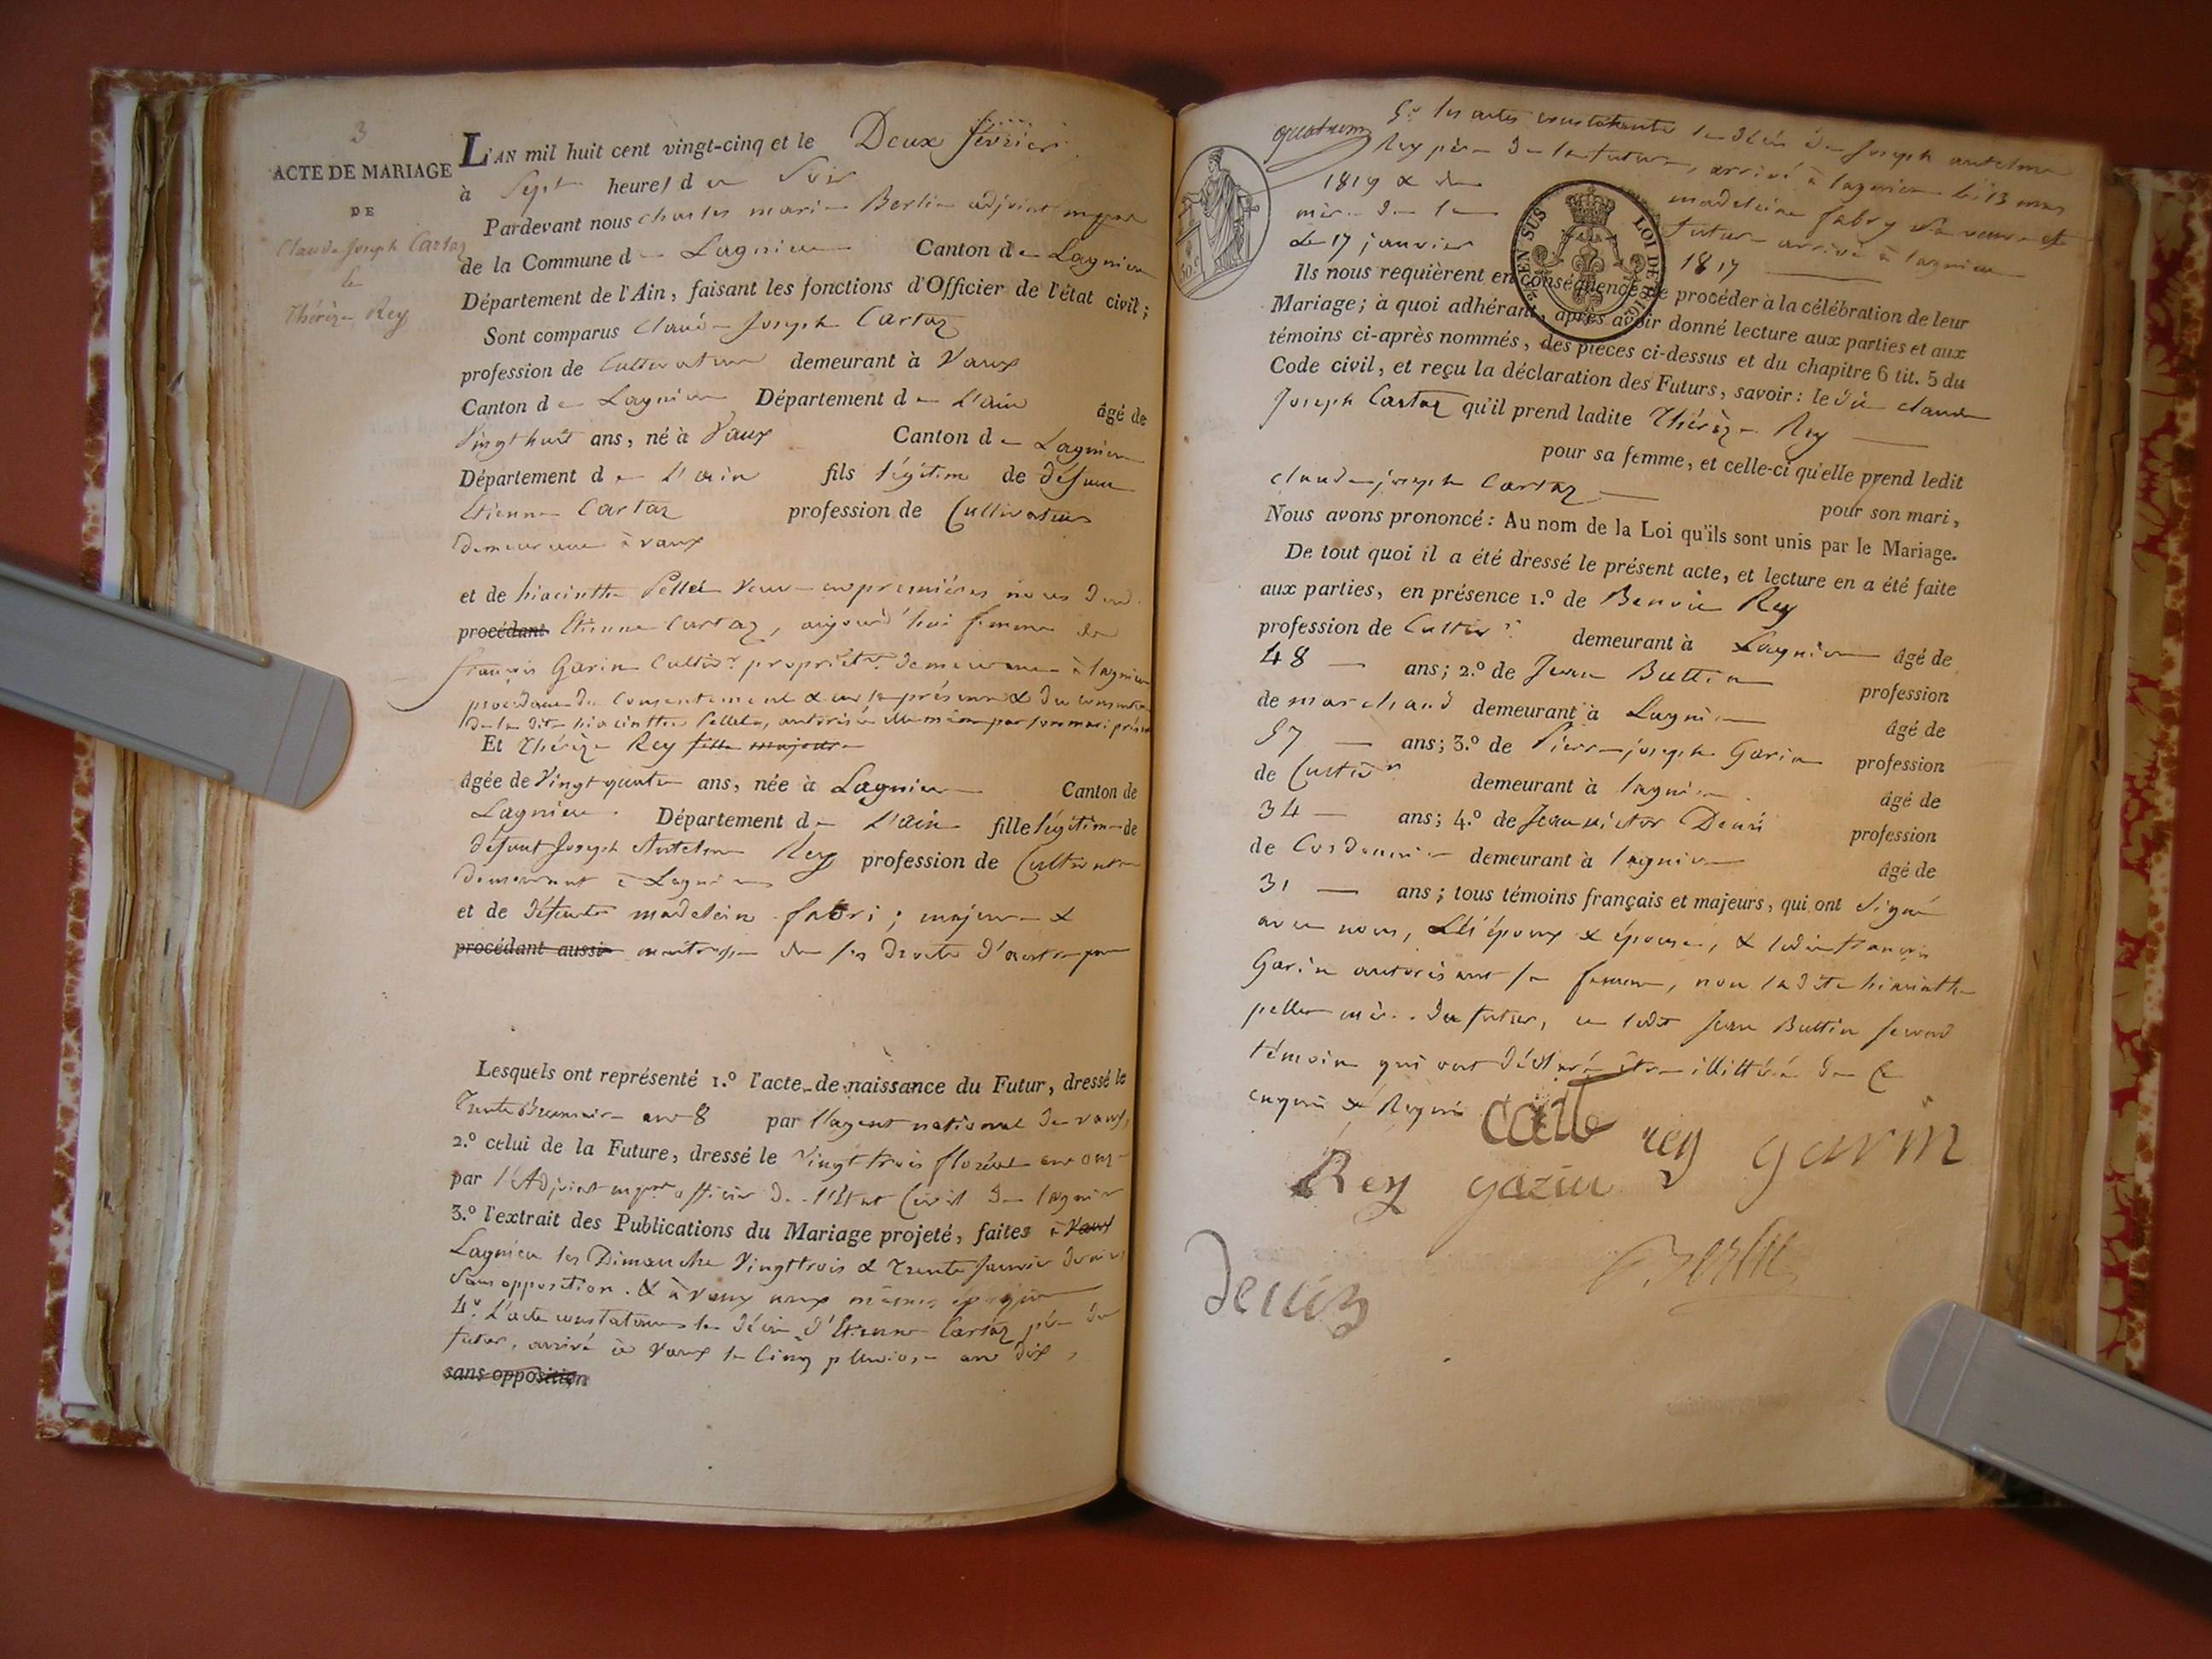 3
ACTE DE MARIAGE
DE
Claude Joseph Cartaz
&
Thérèze Rey
L'AN mil huit cent vingt-cinq et le Deux février
à Sept heures du Soir
Pardevant nous charles marie Berlie adjoint
de la Commune de Lagnieu Canton de Lagnieu
Département de l'Ain, faisant les fonctions d'Officier de l'état civil;
Sont comparus Claude Joseph Cartaz
profession de Cultivateur demeurant à Vaux
Canton de Lagnieu Département de L'ain âgé de
Vingt huit ans, né à Vaux Canton de Lagnieu
Département de L'ain fils légitime de défunt
Etienne Cartaz profession de Cultivateur
demeurant à vaux
et de hiacinthe Pellet veuve en premières noces dud.
procédant Etienne Cartaz, aujourd'hui femme de
françois Garin Cultivr. propriétre. demeurant à lagnieu
procédant du Consentement & en la présence & du
de la dite hiacinthe Pellet, autorisée elle même par son mari présent
Et Thérèze Rey fille majeure
âgée de Vingt quatre ans, née à Lagnieu Canton de
Lagnieu. Département de L'ain fille légitime de
défunt Joseph Antelme Rey profession de Cultivateur
demeurant à Lagnieu
et de défunte madeleine fabri; majeure &
procédant aussi maitresse de ses droits d'autre part
Lesquels ont représenté 1.º l'acte de naissance du Futur, dressé le
Trente Brumaire an 8 par l'agent national de vaux,
2.º celui de la Future, dressé le Vingt trois floréal an onze
par l'Adjoint officier de l'Etat Civil de lagnieu
3.º l'extrait des Publications du Mariage projeté, faites à Vaux
Lagnieu les Dimanche Vingt trois & Trente Janvier dernier
Sans opposition. & à Vaux aux mêmes époques
4º. L'acte constatant le décès d'Etienne Cartaz père du
futur, arrivé à Vaux le Cinq pluviose an dix,
sans opposition
5º les actes constatants le décès de Joseph antelme
Rey père de la future, arrivé à lagnieu le 13 mars
1819 & de madeleine fabry sa veuve et
mère de la future arrivé à lagnieu
Le 17 janvier 1817
LOI DE
Ils nous requièrent en conséquence de procéder à la célébration de leur
Mariage; à quoi adhérant, après avoir donné lecture aux parties et aux
témoins ci-après nommés, des pièces ci-dessus et du chapitre 6 tit. 5 du
Code civil, et reçu la déclaration des Futurs, savoir: le dit claude
Joseph Cartaz qu'il prend ladite Thérèze Rey
pour sa femme, et celle-ci qu'elle prend ledit
claude joseph Cartaz pour son mari,
Nous avons prononcé: Au nom de la Loi qu'ils sont unis par le Mariage.
De tout quoi il a été dressé le présent acte, et lecture en a été faite
aux parties, en présence 1.º de Benoit Rey
profession de Cultivr. demeurant à Lagnieu âgé de
48 ans; 2.º de Jean Buttin profession
de marchand demeurant à Lagnieu âgé de
57 ans; 3.º de Pierre joseph Garin profession
de Cultivr demeurant à lagnieu âgé de
34 ans; 4.º de Jean victor Denis profession
de Cordonnier demeurant à lagnieu âgé de
31 ans; tous témoins français et majeurs, qui ont Signé
avec nous, Les époux & épouse, & ledit françois
Garin autorisant sa femme, non ladite hiacinthe
pellet mère du futur, ni ledit Jean Buttin second
témoin qui ont déclaré être illittérés de ce
enquis & Requis
rey garin
Rey gazin
Berlie